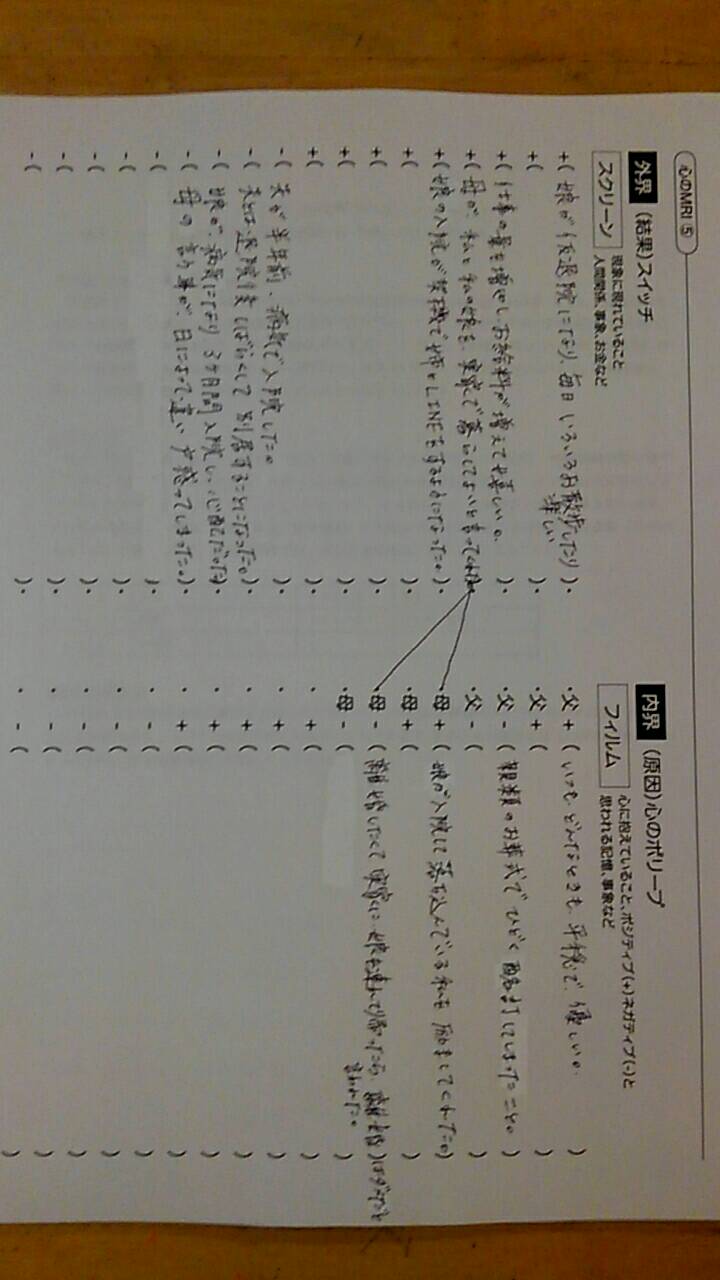 心のMRI ⑤
外界 (結果)スイッチ
スクリーン 現象に現れていること
人間関係、事象、お金など
+( 娘が仮退院になり、毎日いろいろお散歩したり
楽しい ).
+( ).
+( 仕事の量を増やし、お給料が増えて嬉しい。 ).
+( 母が私と私の娘を、実家で暮らしてよいと言ってくれた ).
+( 娘の入院が契機で姉とLINEをするようになった。 ).
+( ).
+( ).
+( ).
+( ).
-( 夫が半年前、病気で入院した。 ).
-( 夫とは退院後しばらくして別居することになった。 ).
-( 娘が、病気になり3ケ月間入院し、心配だった ).
-( 母の言う事が、日によって違い戸惑ってしまった。 ).
-( ).
-( ).
-( ).
-( ).
-( ).
内界 (原因)心のポリープ
フィルム 心に抱えていること、ポジティブ(+)ネガティブ(-)と
思われる記憶、事象など
・父 + ( いつも どんなときも、平穏で、優しい。 )
・父 + ( )
・父 - ( 親類のお葬式でひどく酩酊してしまったこと。 )
・父 - ( )
・母 + ( 娘が入院して落ち込んでいる私を励ましてくれた。 )
・母 + ( )
・母 - ( 離婚したくて実家に娘を連れて帰ったら、離婚 )はダメだと
言われた。
・母 - ( )
・ + ( )
・ + ( )
・ + ( )
・ + ( )
・ + ( )
・ - ( )
・ - ( )
・ - ( )
・ - ( )
・ - ( )